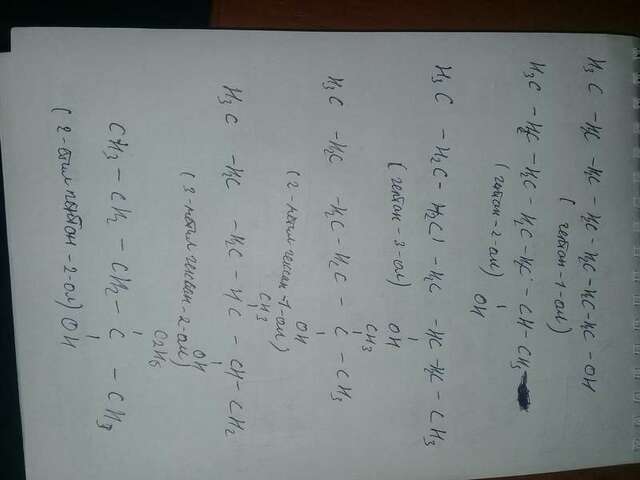 H3C - H2C - H2C - H2C - H2C - H2C - H2C - OH
(гептан-1-ол)
H3C - H2C - H2C - H2C - H2C - CH - CH3
(гептан-2-ол) OH
H3C - H2C - H2C - H2C - HC - HC - CH3
(гептан-3-ол) OH
CH3
H3C - H2C - H2C - H2C - C - CH3
OH
(2-метилгексан-1-ол)
CH3
H3C - H2C - H2C - HC - CH - CH2
OH
(3-метилгексан-2-ол)
C2H5
CH3 - CH2 - CH2 - C - CH3
(2-этилпентан-2-ол) OH